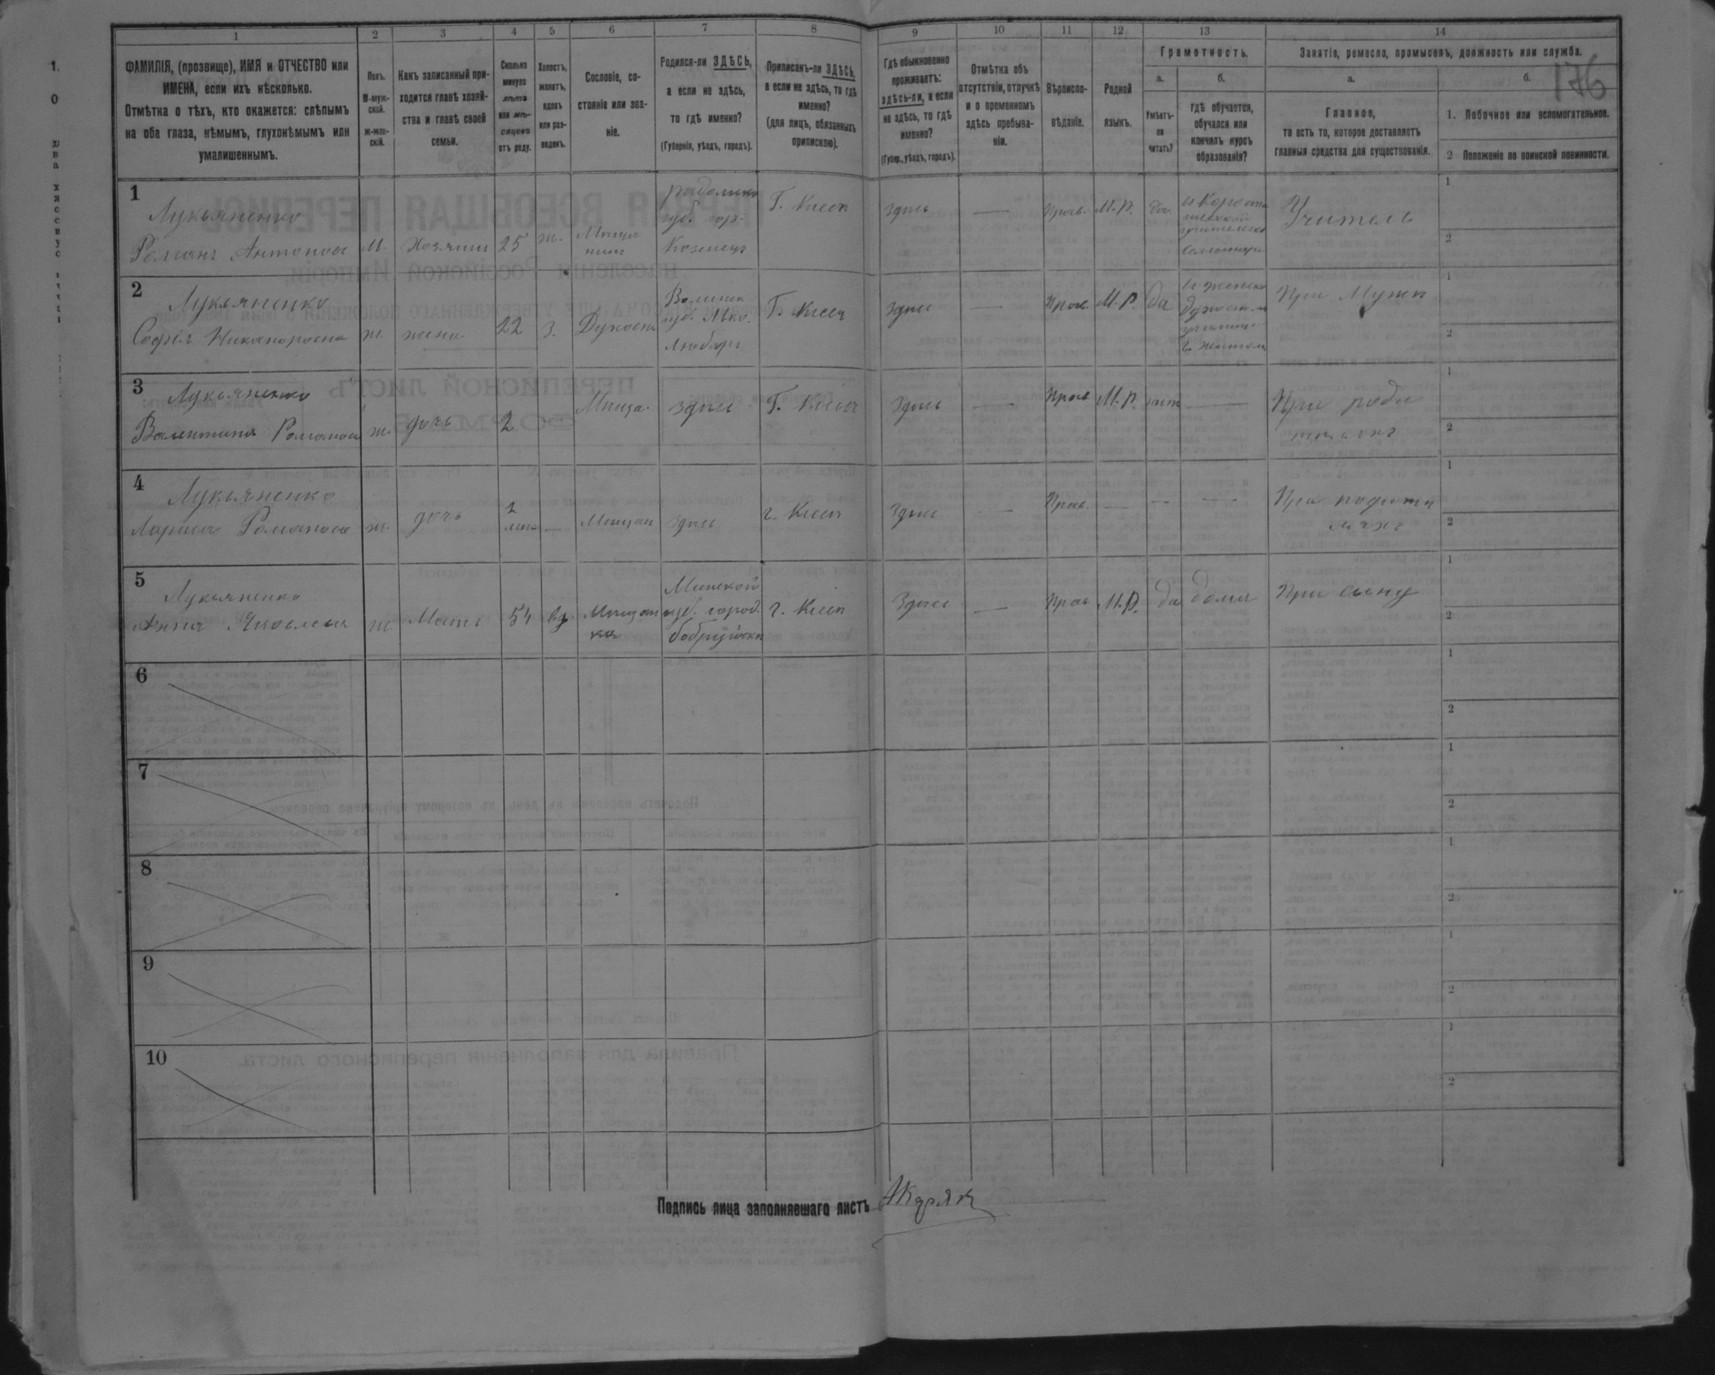 1 2 3 4 5 6 7 8 9 10 11 12 13 14
176
ФАМИЛІЯ, (прозвище), ИМЯ и ОТЧЕСТВО или
ИМЕНА, если ихъ нѣсколько.
Отмѣтка о тѣхъ, кто окажется: слѣпымъ
на оба глаза, нѣмымъ, глухонѣмымъ или
умалишеннымъ.
Полъ.
М-муж-
ской.
Ж-жен-
скій.
Какъ записанный при-
ходится главѣ хозяй-
ства и главѣ своей
семьи.
Сколько
минуло
лѣтъ
или мѣ-
сяцевъ
отъ роду.
Холостъ,
женатъ,
вдовъ
или раз-
веденъ.
Сословіе, со-
стояніе или зва-
ніе.
Родился-ли ЗДѢСЬ,
а если не здѣсь,
то гдѣ именно?
(Губернія, уѣздъ, городъ).
Приписанъ-ли ЗДѢСЬ,
а если не здѣсь, то гдѣ
именно?
(для лицъ, обязанныхъ
припискою).
Гдѣ обыкновенно
проживаетъ:
здѣсь-ли, а если
не здѣсь, то гдѣ
именно?
(Губер., уѣздъ, городъ).
Отмѣтка объ
отсутствіи, отлучкѣ
и о временномъ
здѣсь пребыва-
ніи.
Вѣроиспо-
вѣданіе.
Родной
языкъ.
Грамотность.
а.
Умѣетъ-
ли
читать?
б.
гдѣ обучается,
обучался или
кончилъ курсъ
образованія?
Занятіе, ремесло, промыселъ, должность или служба.
а.
Главное,
то есть то, которое доставляетъ
главныя средства для существованія.
б.
1. Побочное или вспомогательное.
2 Положеніе по воинской повинности.
1
Лукьяненко
Романъ Антоновъ М. Хозяинъ 25 ж. Мѣща
нинъ
губ. гор.
Г. Кіевъ здѣсь — Прав. М.Р. да
Учитель
2
Лукьяненко
Софья Никаноровна ж. жена 22 з.
Волынск
губ. Мѣс.
Любаръ
Г. Кіевъ здѣсь — Прав. М.Р. да
При мужѣ
3
Лукьяненко
Валентина Романова ж. дочь 2 Мѣща. здѣсь Г. Кіевъ здѣсь — Прав. М.Р. нѣтъ —
При роди
теляхъ
4
Лукьяненко
Лариса Романова ж. дочь — Мѣщан здѣсь г. Кіевъ здѣсь — Прав. — — —
При родите
ляхъ
5
Лукьяненко
Анна Яковлева ж Мать 54 вд Мѣщан
ка
Минской
губ. город.
Бобруйска
г. Кіевъ здѣсь — Прав М.Р. да дома При сыну
6
7
8
9
10
Подпись лица заполнявшаго листъ